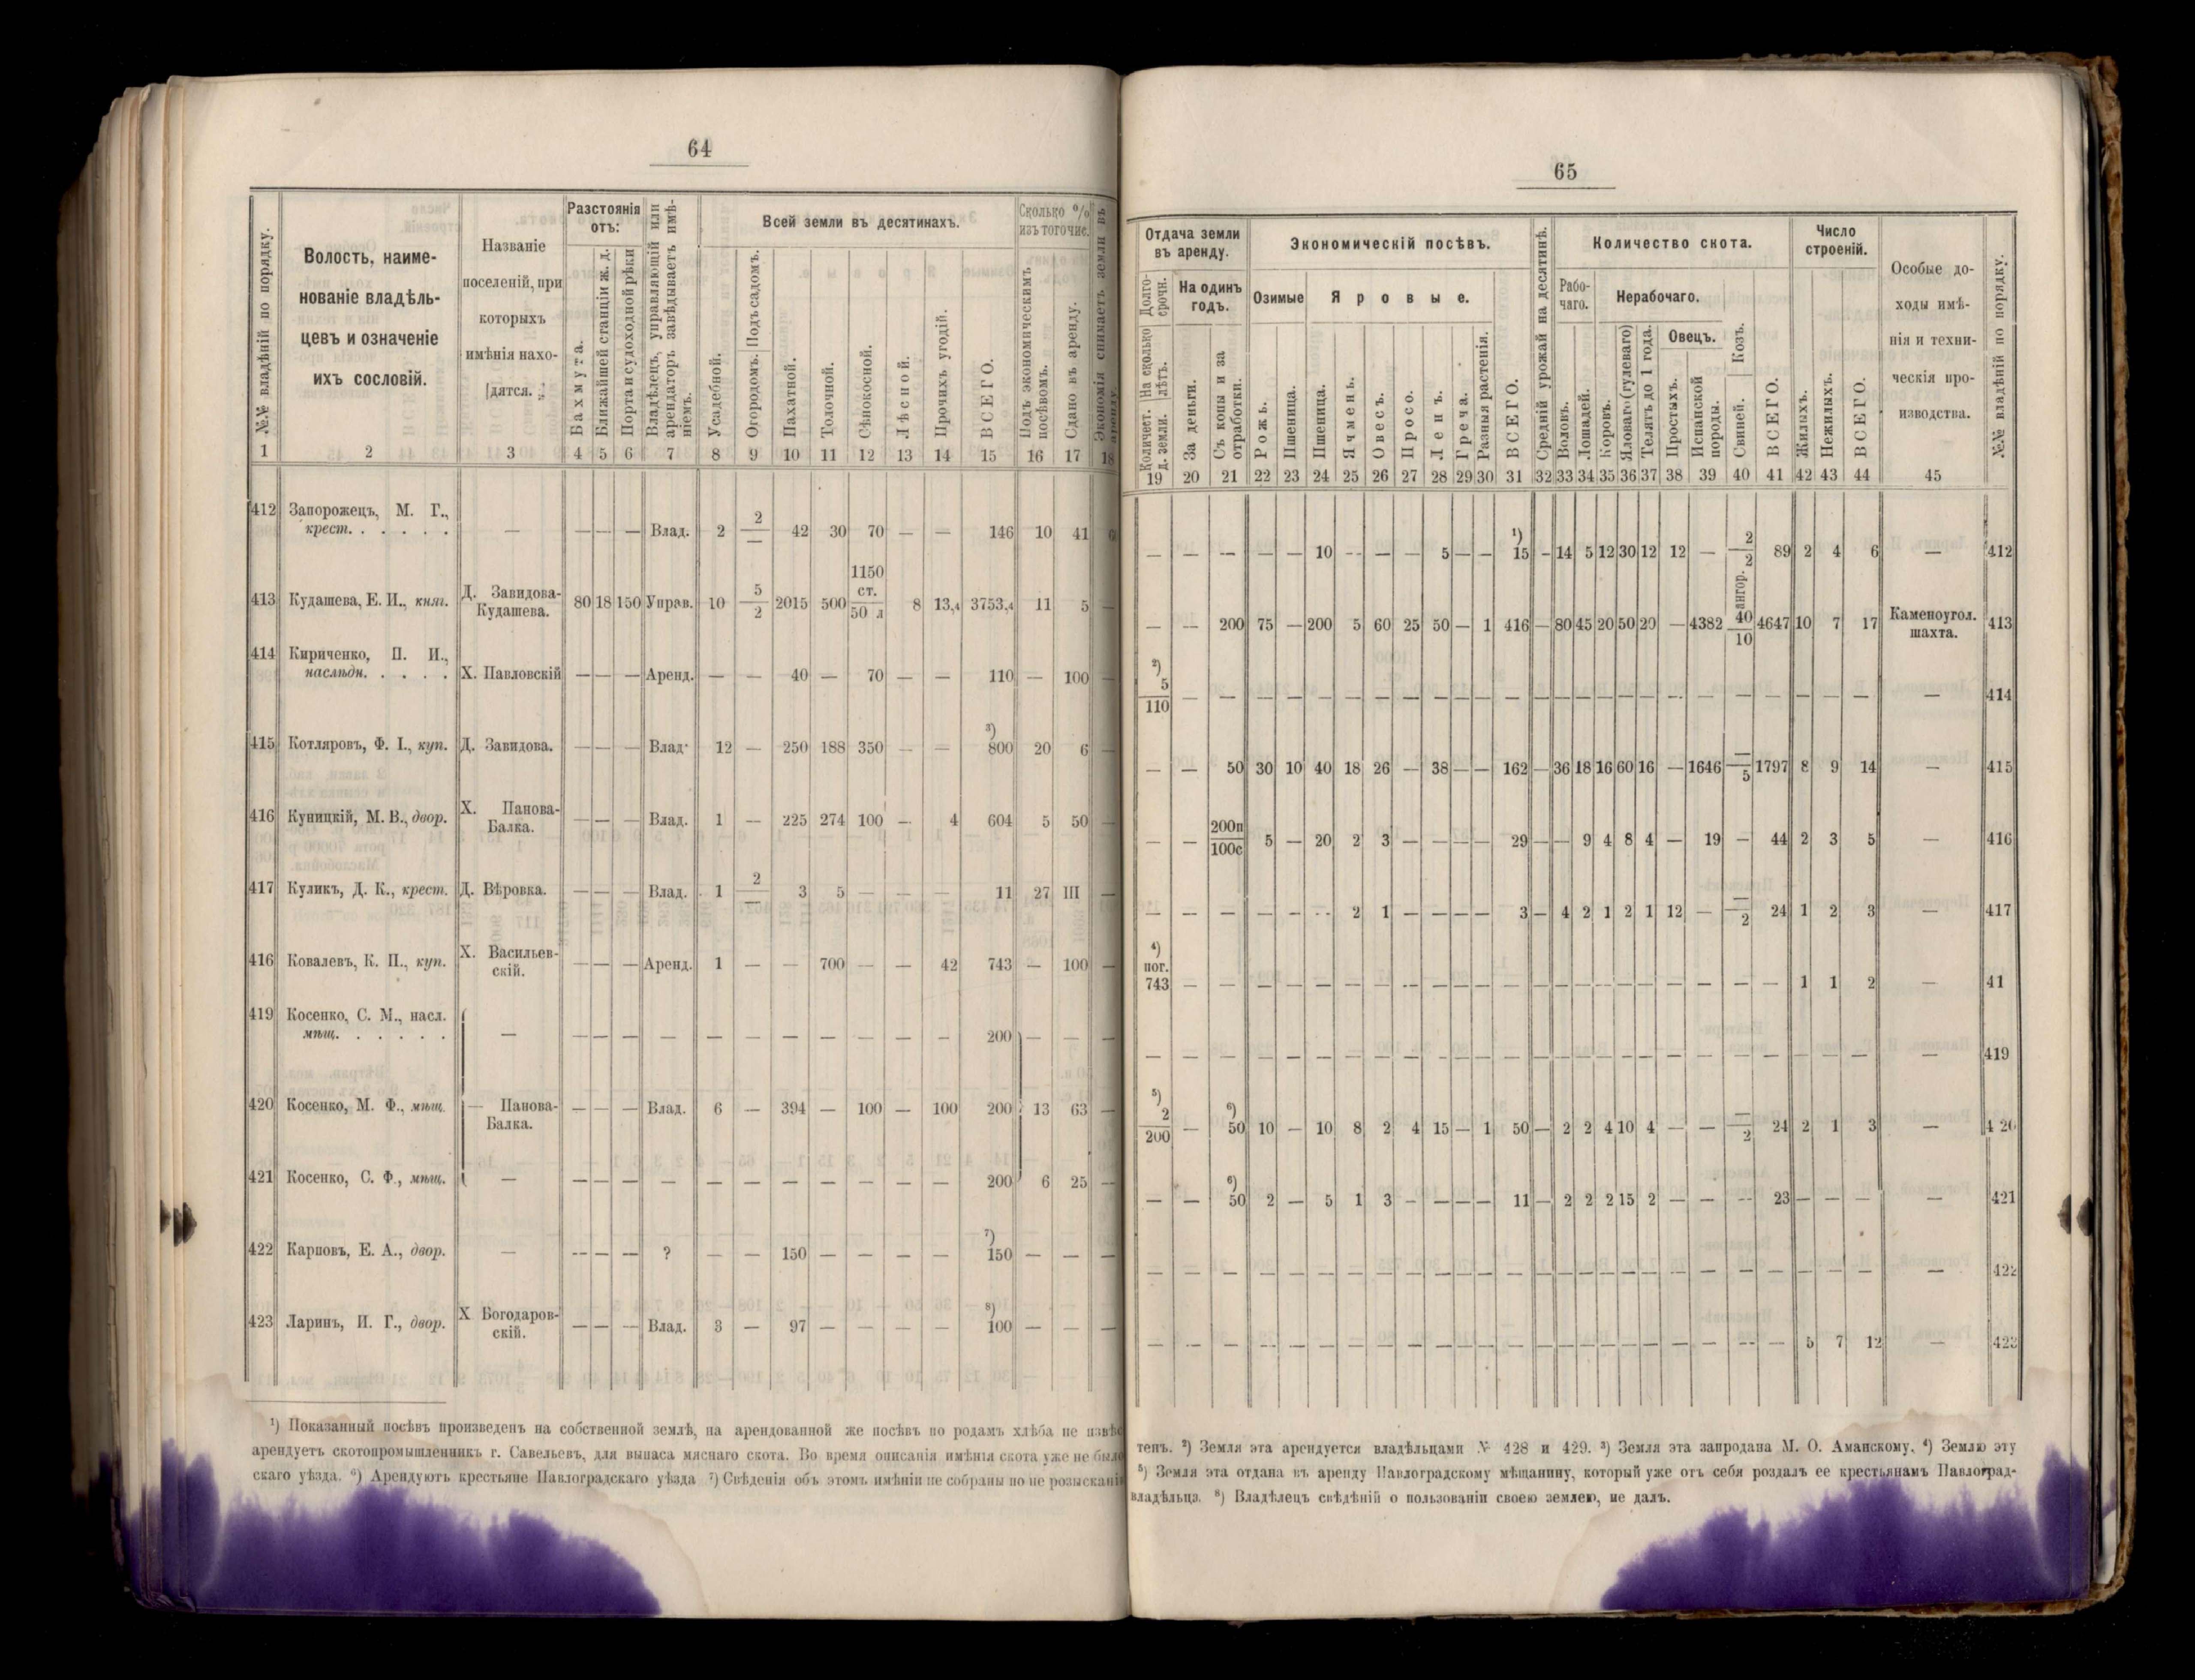 64
№№ владѣній по порядку.
Волость, наиме-
нованіе владѣль-
цевъ и означеніе
ихъ сословій.
Названіе
поселеній, при
которыхъ
имѣнія нахо-
дятся.
Разстоянія
отъ:
Бахмута.
Ближайшей станціи ж. д.
Порта и судоходной рѣки
Владѣлецъ, управляющій или
арендаторъ завѣдываетъ имѣ-
ніемъ.
Всей земли въ десятинахъ.
Усадебной.
Огородомъ. Подъ садомъ.
Пахатной.
Толочной.
Сѣнокосной.
Лѣсной.
Прочихъ угодій.
ВСЕГО.
Сколько %
изъ того чис.
Подъ экономическимъ
посѣвомъ.
Сдано въ аренду.
Экономія снимаетъ земли въ
аренду.
1 2 3 4 5 6 7 8 9 10 11 12 13 14 15 16 17 18
412 Запорожецъ, М. Г.,
крест. . . . . . — — — — Влад. 2 2/— 42 30 70 — — 146 10 41
413 Кудашева, Е. И., княг. Д. Завидова-
Кудашева. 80 18 150 Управ. 10 5/2 2015 500 1150 ст./50 л 8 13,4 3753,4 11 5 —
414 Кириченко, П. И.,
наслѣдн. . . . . Х. Павловскій — — — Аренд. — — 40 — 70 — — 110 — 100 —
415 Котляровъ, Ф. І., куп. Д. Завидова. — — — Влад. 12 — 250 188 350 — — ³) 800 20 6 —
416 Куницкій, М. В., двор. Х. Панова-
Балка. — — — Влад. 1 — 225 274 100 — 4 604 5 50 —
417 Куликъ, Д. К., крест. Д. Вѣровка. — — — Влад. 1 2/— 3 5 — — — 11 27 III —
416 Ковалевъ, К. П., куп. Х. Васильев-
скій. — — — Аренд. 1 — — 700 — — 42 743 — 100 —
419 Косенко, С. М., насл.
мѣщ. . . . . . — — — — — — — — — — — — 200 — — —
420 Косенко, М. Ф., мѣщ. — Панова-
Балка. — — — Влад. 6 — 394 — 100 — 100 200 13 63 —
421 Косенко, С. Ф., мѣщ. — — — — — — — — — — — — 200 6 25 —
422 Карповъ, Е. А., двор. — — — — ? — — 150 — — — — ⁷) 150 — — —
423 Ларинъ, И. Г., двор. Х Богодаров-
скій. — — — Влад. 3 — 97 — — — — ⁸) 100 — — —
¹) Показанный посѣвъ произведенъ на собственной землѣ, на арендованной же посѣвъ по родамъ хлѣба не извѣс
арендуетъ скотопромышленникъ г. Савельевъ, для выпаса мяснаго скота. Во время описанія имѣнія скота уже не было
скаго уѣзда. ⁶) Арендуютъ крестьяне Павлоградскаго уѣзда ⁷) Свѣденія объ этомъ имѣніи не собраны по не розысканію
65
Отдача земли
въ аренду.
Долго-
срочн.
Количест. На сколько
д. земли. лѣтъ.
На одинъ
годъ.
За деньги.
Съ копы и за
отработки.
Экономическій посѣвъ.
Озимые
Рожь.
Пшеница.
Яровые.
Пшеница.
Ячмень.
Овесъ.
Просо.
Ленъ.
Греча.
Разныя растенія.
ВСЕГО.
Средній урожай на десятинѣ.
Количество скота.
Рабо-
чаго.
Воловъ.
Лошадей.
Нерабочаго.
Коровъ.
Яловаго (гулеваго)
Телятъ до 1 года.
Овецъ.
Простыхъ.
Испанской
породы.
Свиней. Козъ.
ВСЕГО.
Число
строеній.
Жилыхъ.
Нежилыхъ.
ВСЕГО.
Особые до-
ходы имѣ-
нія и техни-
ческія про-
изводства.
№№ владѣній по порядку.
19 20 21 22 23 24 25 26 27 28 29 30 31 32 33 34 35 36 37 38 39 40 41 42 43 44 45
— — — — — 10 — — — 5 — — ¹) 15 — 14 5 12 30 12 12 — 2/2 89 2 4 6 — 412
— — 200 75 — 200 5 60 25 50 — 1 416 — 80 45 20 50 20 — 4382 ангор. 40/10 4647 10 7 17 Каменоугол.
шахта. 413
²) 5/110 — — — — — — — — — — — — — — — — — — — — — — — — — — 414
— — 50 30 10 40 18 26 — 38 — — 162 — 36 18 16 60 16 — 1646 —/5 1797 8 9 14 — 415
— — 200п/100с 5 — 20 2 3 — — — — 29 — — 9 4 8 4 — 19 — 44 2 3 5 — 416
— — — — — — 2 1 — — — — 3 — 4 2 1 2 1 12 — —/2 24 1 2 3 — 417
⁴) пог. 743 — — — — — — — — — — — — — — — — — — — — — — 1 1 2 — 41
— — — — — — — — — — — — — — — — — — — — — — — — — — — 419
⁵) 2/200 — ⁶) 50 10 — 10 8 2 4 15 — 1 50 — 2 2 4 10 4 — — —/2 24 2 1 3 — 4 20
— — ⁶) 50 2 — 5 1 3 — — — — 11 — 2 2 2 15 2 — — — 23 — — — — 421
— — — — — — — — — — — — — — — — — — — — — — — — — — — 422
— — — — — — — — — — — — — — — — — — — — — — — 5 7 12 — 423
тенъ. ²) Земля эта арендуется владѣльцами № 428 и 429. ³) Земля эта запродана М. О. Аманскому. ⁴) Землю эту
⁵) Земля эта отдана въ аренду Павлоградскому мѣщанину, который уже отъ себя роздалъ ее крестьянамъ Павлоград-
владѣльца. ⁸) Владѣлецъ свѣдѣній о пользованіи своею землею, не далъ.